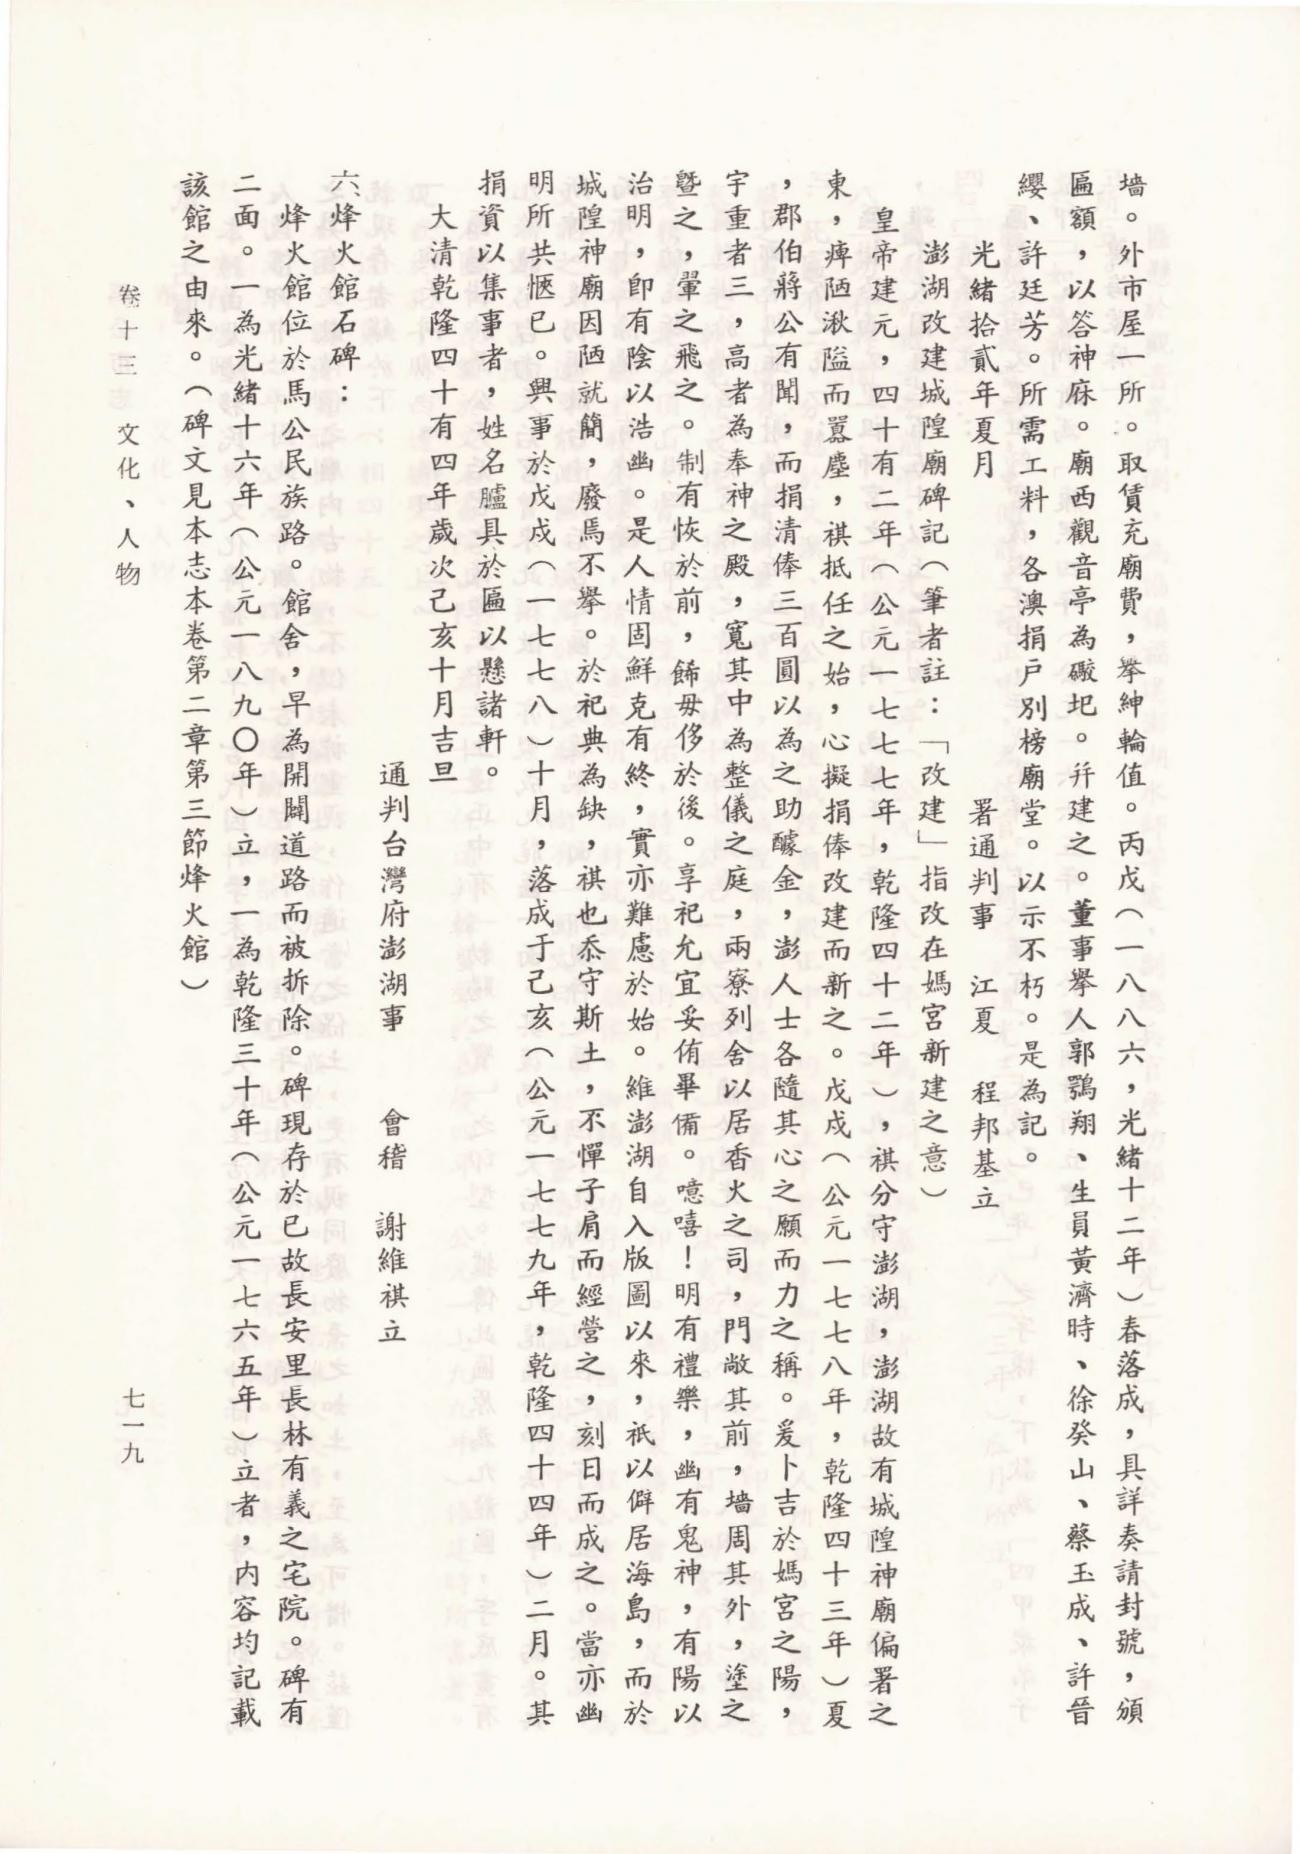 墙。外市屋一所。取賃充廟費，擧紳輪值。丙戊（一八八六，光緒十二年）春落成，具詳奏請封號，頒
匾額，以答神庥。廟西觀音亭為礮圯。幷建之。董事擧人郭鶚翔、生員黃濟時、徐癸山、蔡玉成、許晉
纓、許廷芳。所需工料，各澳捐戶別榜廟堂。以示不朽。是為記。
光緒拾貳年夏月　署通判事　江夏　程邦基立
澎湖改建城隍廟碑記（筆者註：「改建」指改在媽宮新建之意）
皇帝建元，四十有二年（公元一七七七年，乾隆四十二年），祺分守澎湖，澎湖故有城隍神廟偏署之
東，痺陋湫隘而囂塵，祺抵任之始，心擬捐俸改建而新之。戊戌（公元一七七八年，乾隆四十三年）夏
，郡伯蔣公有聞，而捐清俸三百圓以為之助醵金，澎人士各隨其心之願而力之稱。爰卜吉於媽宮之陽，
宇重者三，高者為奉神之殿，寬其中為整儀之庭，兩寮列舍以居香火之司，門敞其前，墻周其外，塗之
曁之，翬之飛之。制有恢於前，餙毋侈於後。享祀允宜妥侑畢備。噫嘻！明有禮樂，幽有鬼神，有陽以
治明，卽有陰以浩幽。是人情固鮮克有終，實亦難慮於始。維澎湖自入版圖以來，祇以僻居海島，而於
城隍神廟因陋就簡，廢焉不擧。於祀典為缺，祺也忝守斯土，不憚子肩而經營之，刻日而成之。當亦幽
明所共愜已。興事於戊戌（一七七八）十月，落成于己亥（公元一七七九年，乾隆四十四年）二月。其
捐資以集事者，姓名臚具於匾以懸諸軒。
大清乾隆四十有四年歲次己亥十月吉旦
通判台灣府澎湖事　會稽　謝維祺立
六、烽火館石碑：
烽火館位於馬公民族路。館舍，早為開闢道路而被拆除。碑現存於已故長安里長林有義之宅院。碑有
二面。一為光緒十六年（公元一八九〇年）立，一為乾隆三十年（公元一七六五年）立者，內容均記載
該館之由來。（碑文見本志本卷第二章第三節烽火館）
卷十三　文化、人物
七一九